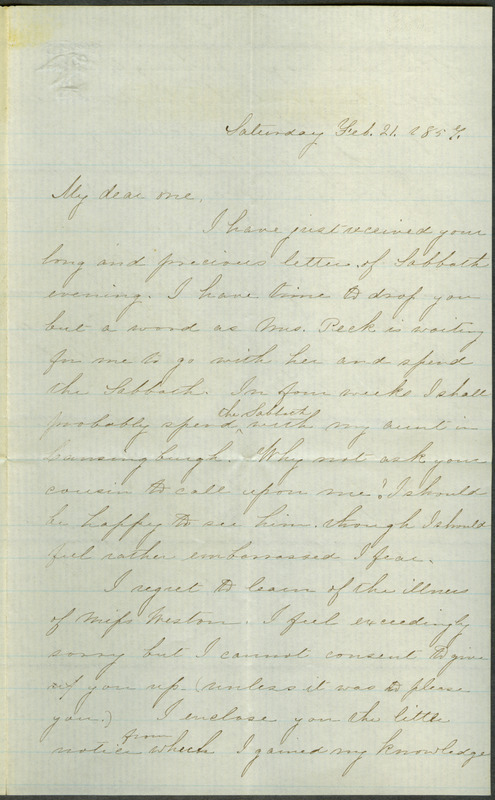 Saturday Feb. 21. 1857.
My dear one,
I have just received your
long and precious letter of Sabbath
evening. I have time to drop you
but a word as Mrs. Peck is waiting
for me to go with her and spend
the Sabbath. In four weeks I shall
probably spend the Sabbath with my aunt in
Lansingburgh. Why not ask your
cousin to call upon me? I should
be happy to see him. though I should
feel rather embarrassed I fear.
I regret to learn of the illness
of Miss Weston. I feel exceedingly
sorry but I cannot consent to give
you up (unless it was to please
you.) I enclose you the little
notice from which I gained my knowledge